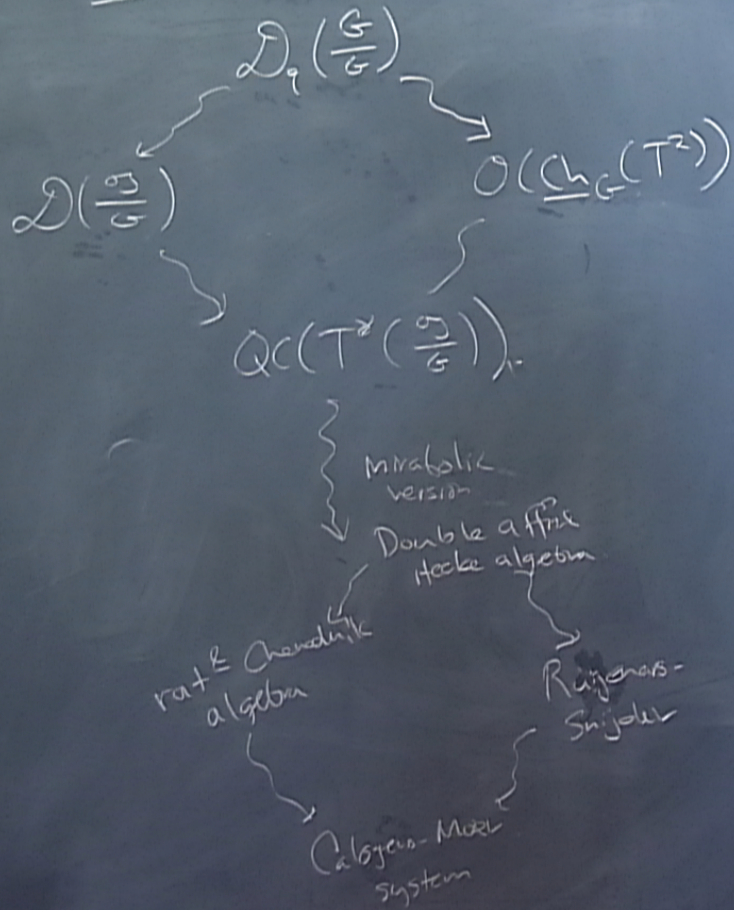 𝒟_q(G/G)
𝒟(𝔤/G)
O(Ch_G(T²))
QC(T*(𝔤/G))
mirabolic
version
Double affine
Hecke algebra
rat^l Cherednik
algebra
Ruijenars-
Snijder
Calogero-Moser
system